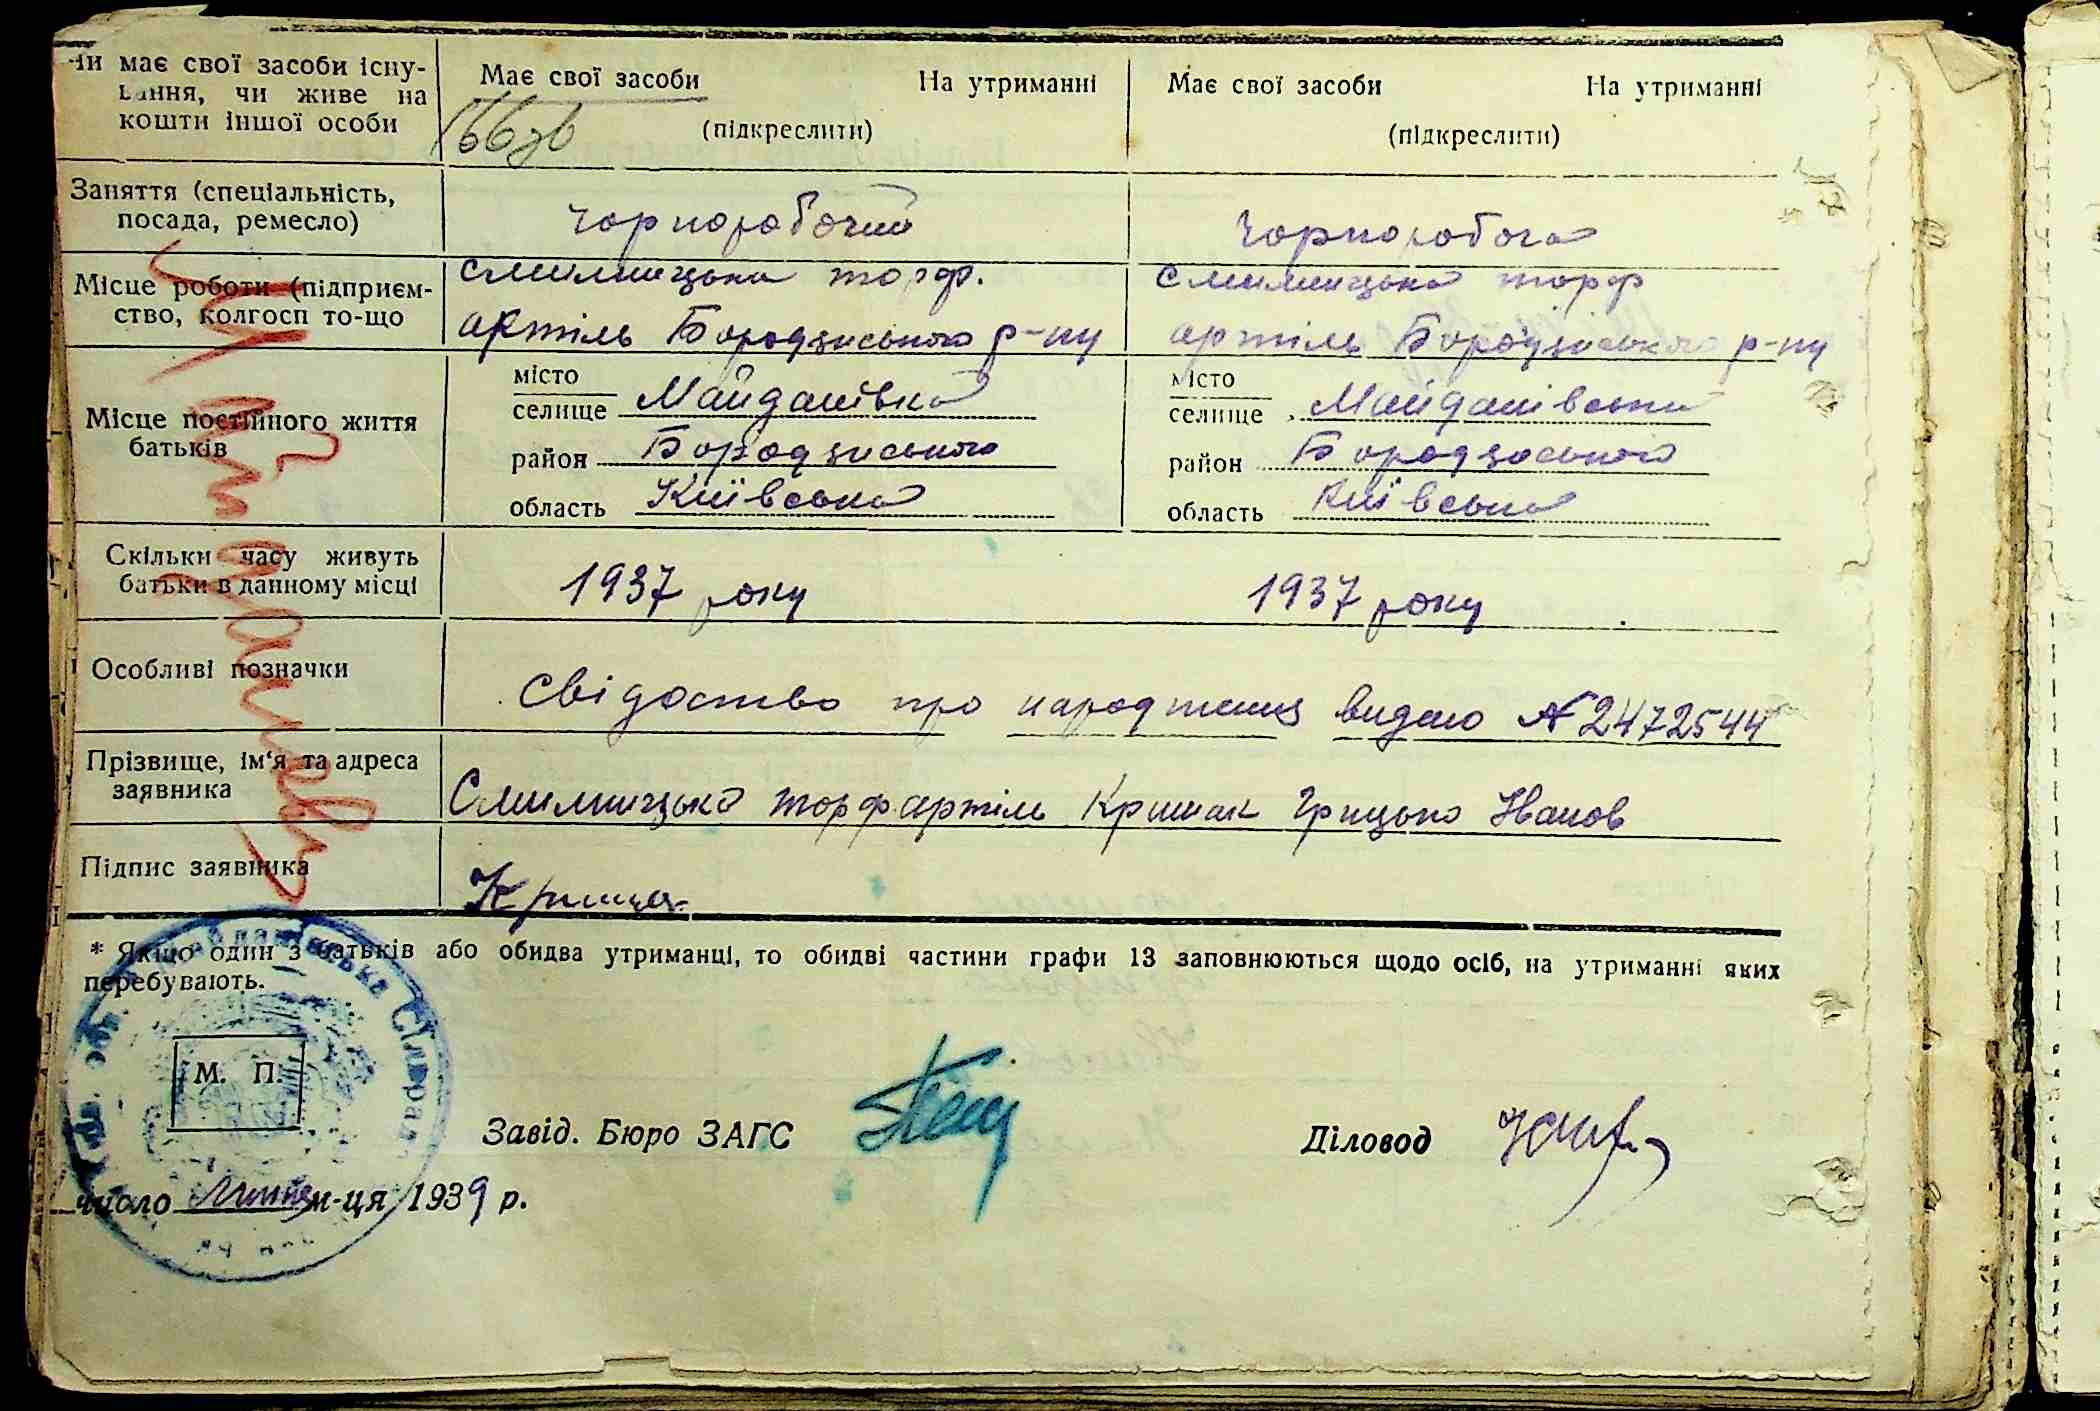 Чи має свої засоби існу-
вання, чи живе на
кошти іншої особи
Має свої засоби На утриманні
(підкреслити)
Має свої засоби На утриманні
(підкреслити)
Заняття (спеціальність,
посада, ремесло)
чорноробочий
чорноробоча
Місце роботи (підприєм-
ство, колгосп то-що
Смилшицька торф.
артіль Бородянського р-ну
Смилшицька торф
артіль Бородянського р-ну
Місце постійного життя
батьків
місто
селище Майданівка
район Бородянського
область Київська
місто
селище Майданівська
район Бородянського
область Київська
Скільки часу живуть
батьки в данному місці
1937 року
1937 року
Особливі позначки
Свідоство про народження видано № 2472544
Прізвище, ім'я та адреса
заявника
Смилшицька торфартіль Кришак Грицько Іванов
Підпис заявника
* Якщо один з батьків або обидва утриманці, то обидві частини графи 13 заповнюються щодо осіб, на утриманні яких
перебувають.
М. П.
Завід. Бюро ЗАГС
Діловод
число м-ця 1939 р.